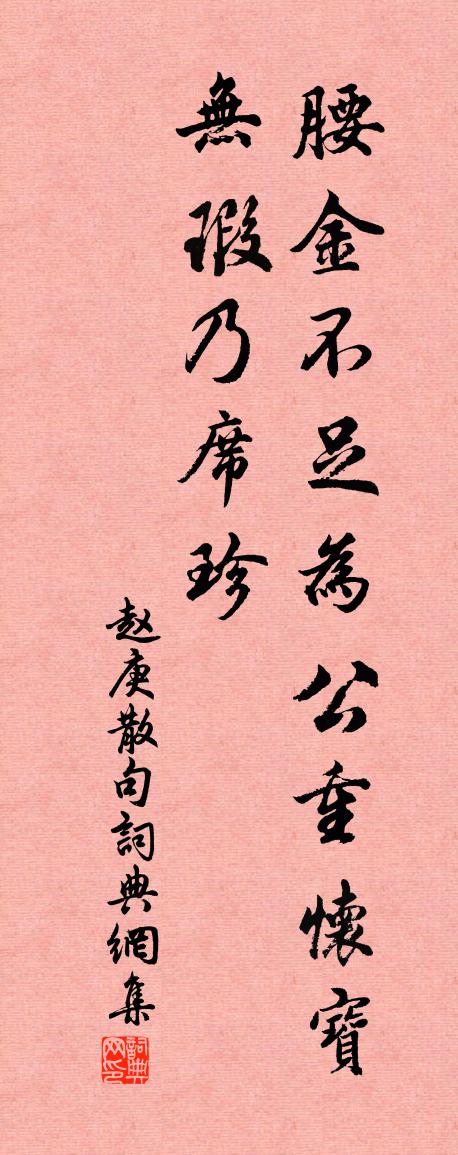 腰金不足為公重懷寶
無瑕乃席珍
赵庚散句詞典網集
詞典网印